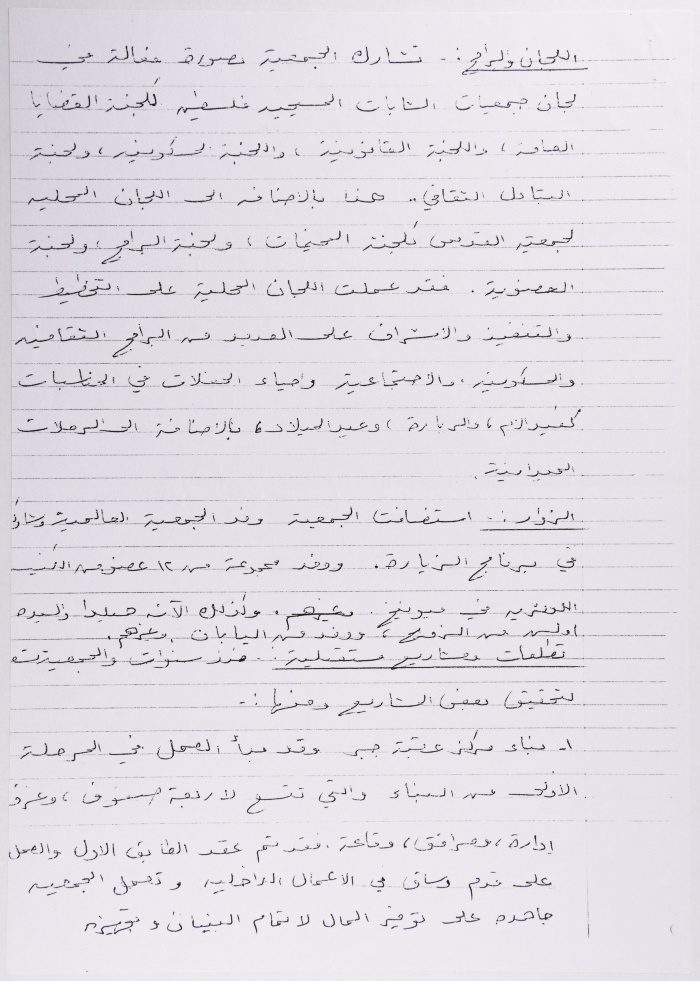 اللجان والبرامج :- تشارك الجمعية بصورة فعالة في
لجان جمعيات الشابات المسيحية فلسطين كلجنة القضايا
العامة، واللجنة القانونية، واللجنة المسكونية، ولجنة
التبادل الثقافي.. هذا بالاضافة الى اللجان المحلية
لجمعية القدس كلجنة المخيمات، ولجنة البرامج، ولجنة
العضوية. فقد عملت اللجان المحلية على التخطيط
والتنفيذ والاشراف على العديد من البرامج الثقافية
والمسكونية، والاجتماعية واحياء الحفلات في المناسبات
كعيد الام، والبربارة، وعيد الميلاد، بالاضافة الى الرحلات
الميدانية.
الزوار :- استضافت الجمعية وفد الجمعية العالمية
في برنامج الزيارة. ووفد مجموعة من ١٢ عضو من
اللوثرية في ميونيخ. وغيرهم. وكذلك الآنسة والسيدة
من النرويج، ووفد من اليابان وغيرهم.
تطلعات ومشاريع مستقبلية :- منذ سنوات والجمعية
لتحقيق بعض المشاريع ومنها :-
١- بناء مركز عقبة جبر وقد بدأ العمل في المرحلة
الاولى من البناء والتي تتسع لاربعة صفوف، وغرف
إدارة، ومرافق، وقاعة. فقد تم عقد الطابق الاول والعمل
على قدم وساق في الاعمال الداخلية وتعمل الجمعية
جاهدة على توفير المال لاتمام البنيان وتجهيزه